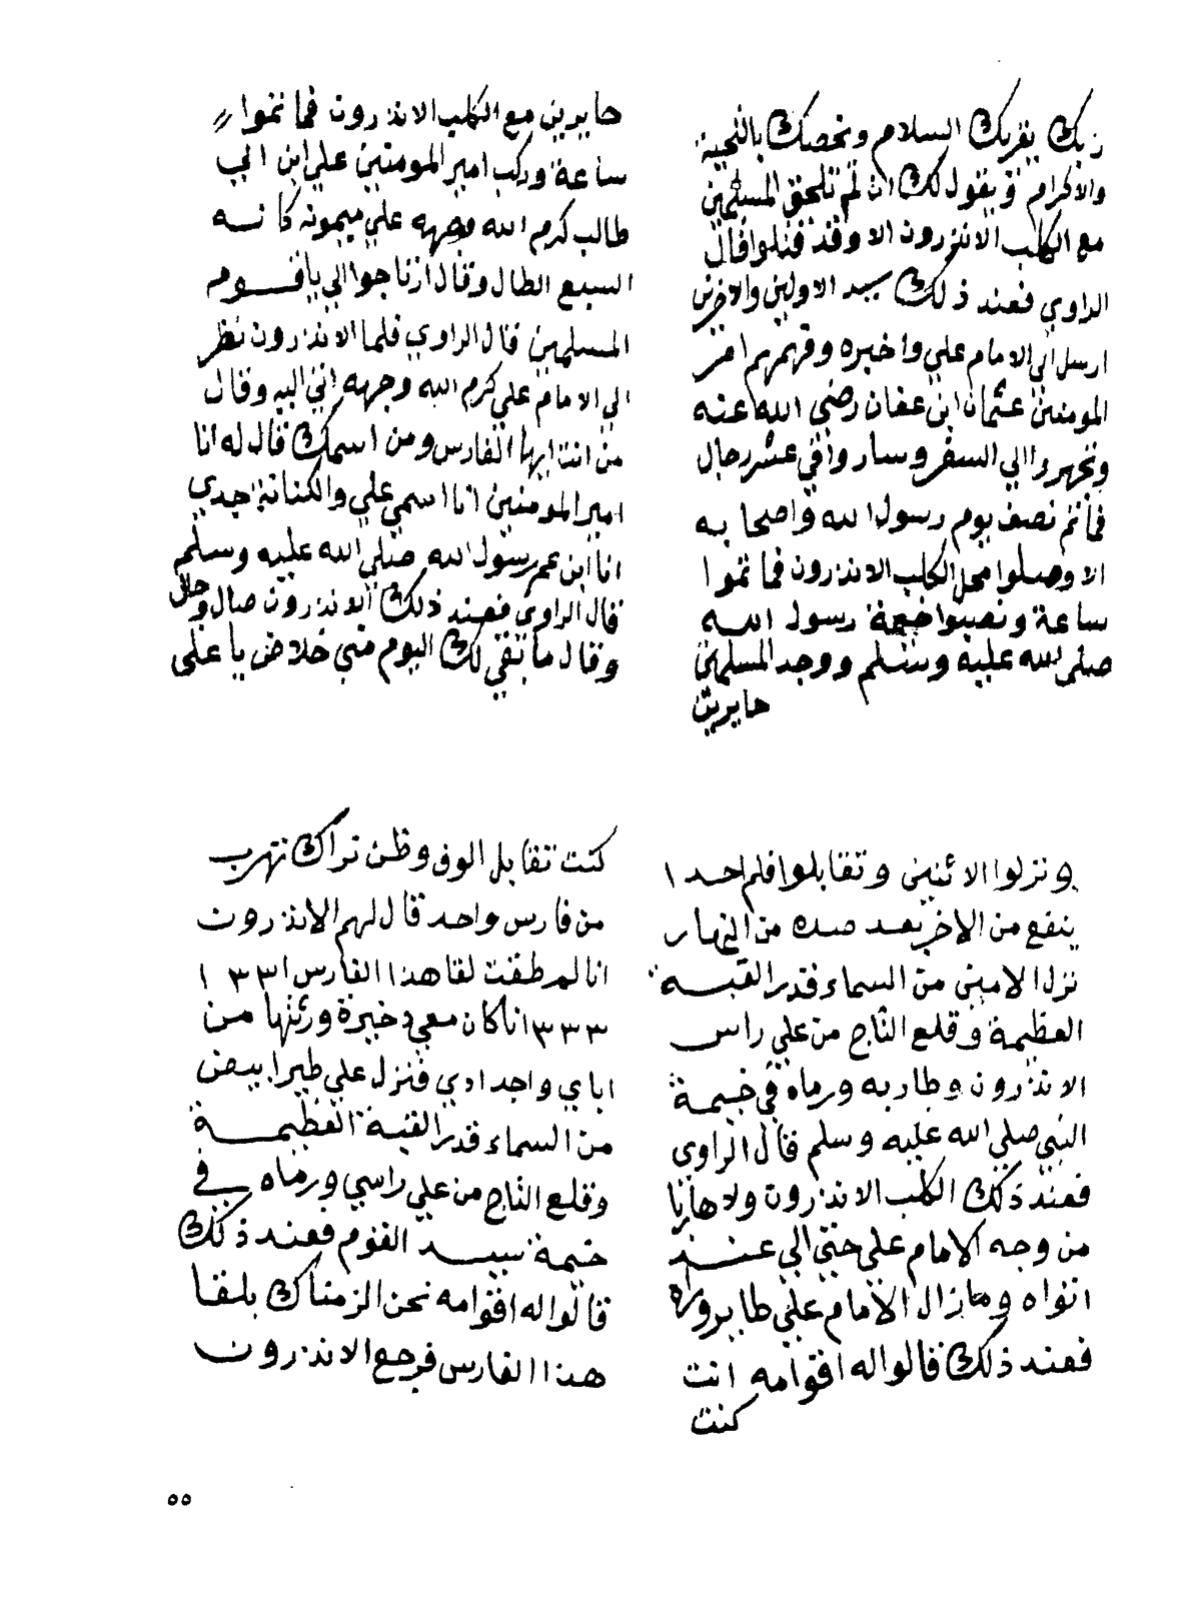 ربك يقريك السلام ويخصك بالتحية
والاكرام ويقول لك ان لم تلحق المسلمين
مع الكلب الاندرون الا وقد قتلوا قال
الراوي فعند ذلك سيد الاولين والاخرين
ارسل الى الامام علي واخبره وفهمهم امر
المومنين عثمان ابن عفان رضي الله عنه
وتجهروا الي السفر وسار وافي عشر رجال
فما تم نصف يوم رسول الله واصحابه
الا وصلوا محل الكلب الاندرون فما تموا
ساعة ونصبوا خيمة رسول الله
صلى الله عليه وسلم ووجد المسلمين
حايرين
حايرين مع الكلب الاندرون فما تموا
ساعة وركب امير المومنين علي ابن ابي
طالب كرم الله وجهه علي ميمونه كانه
السبع الطال وقال ارتاجوا الي ياقوم
المسلمين قال الراوي فلما الاندرون نظر
الي الامام علي كرم الله وجهه اتي اليه وقال
من انت ايها الفارس ومن اسمك قال له انا
امير المومنين انا اسمي علي والكنانة جدي
انا ابن عم رسول الله صلى الله عليه وسلم
قال الراوي فعند ذلك الاندرون صال وجال
وقال ما بقي لك اليوم مني خلاص يا علي
ونزلوا الاثنين وتقابلوا فلم احدا
ينفع من الاخر بعد صده من النهار
نزل الامين من السماء قدر القبة
العظيمة وقلع التاج من علي راس
الاندرون وطار به ورماه في خيمة
النبي صلي الله عليه وسلم قال الراوي
فعند ذلك الكلب الاندرون ولا هاربا
من وجه الامام علي حتي الي عند
اتواه وما زال الامام علي طايروراه
فعند ذلك قالوا له اقوامه انت
كنت
كنت تقابل الوف وظن تراك تهرب
من فارس واحد قال لهم الاندرون
انا لم طقت لقا هذا الفارس ١٣٣١
٣٣٣ انا كان معي ذخيرة ورثتها من
اباي واجدادي فنزل علي طيرا بيض
من السماء قدر القبة العظيمة
وقلع التاج من علي راسي ورماه في
خيمة سيد القوم فعند ذلك
قالوا له اقوامه نحن الزمناك بلقا
هذا الفارس فرجع الاندرون
٥٥